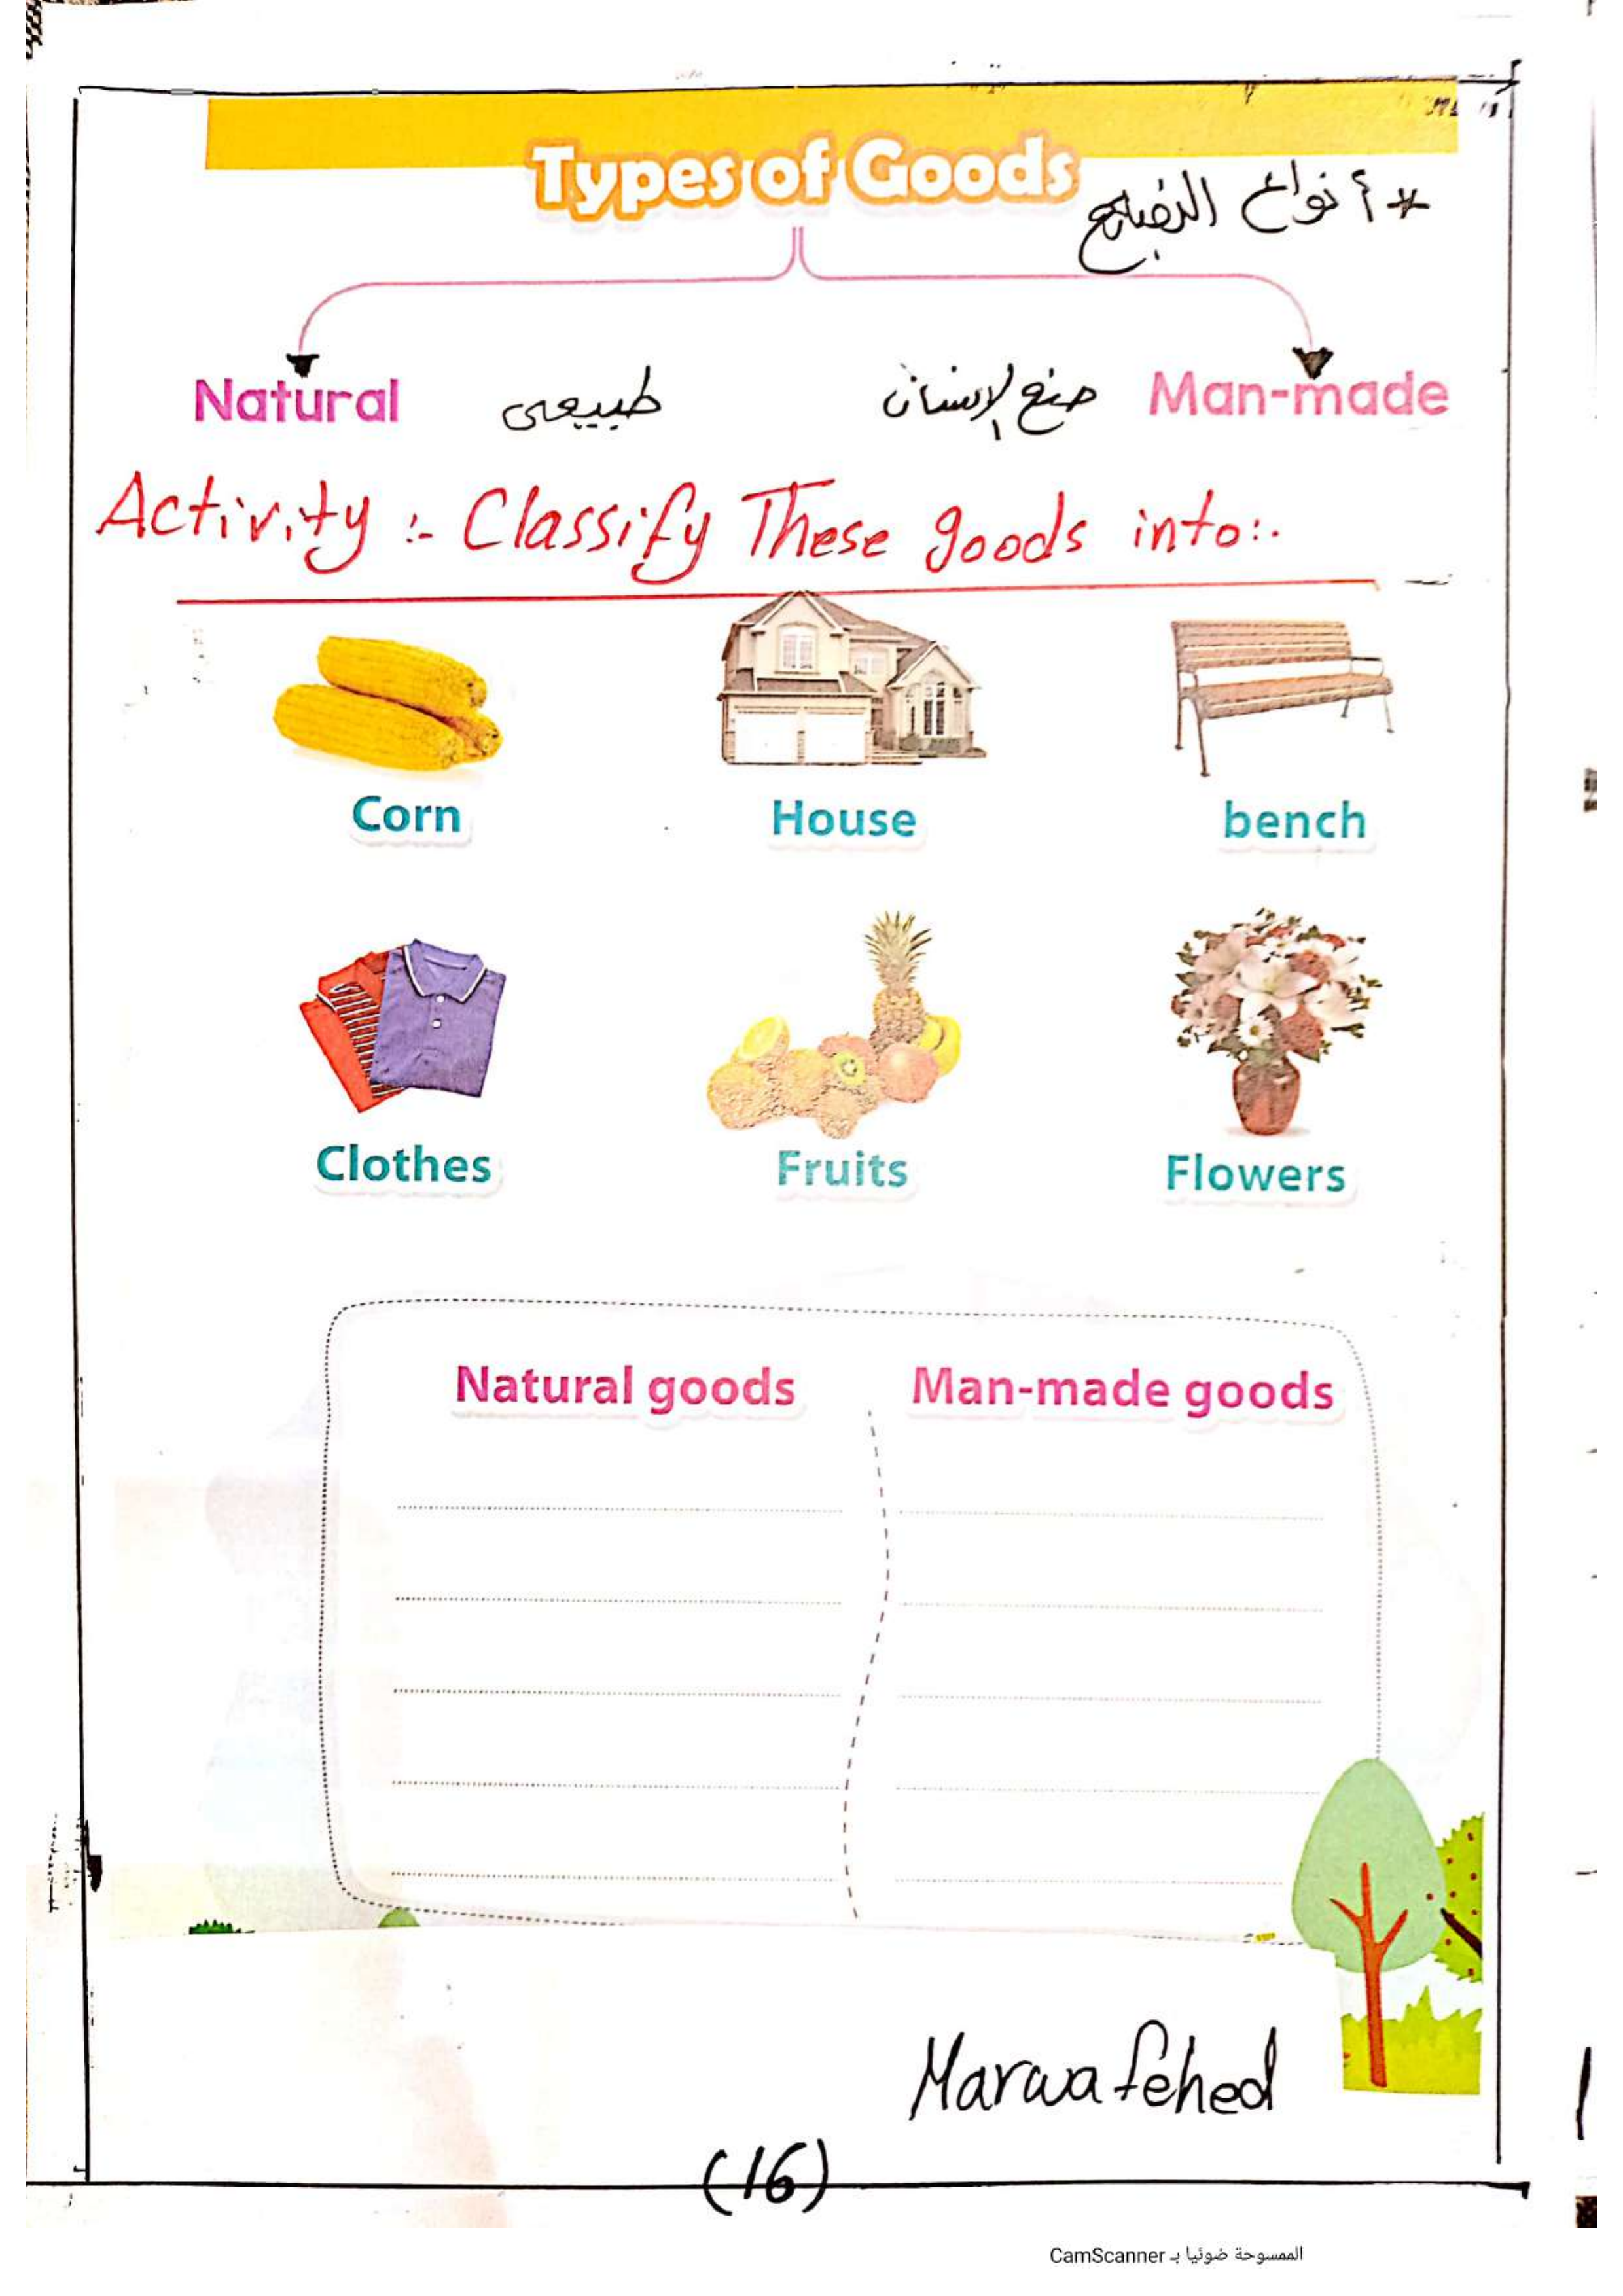 Types of Goods
* أنواع البضايع
Natural طبيعى صنع الإنسان Man-made
Activity :- Classify These goods into:-
Corn House bench
Clothes Fruits Flowers
Natural goods Man-made goods
Marwa fehed
(16)
الممسوحة ضوئيا بـ CamScanner